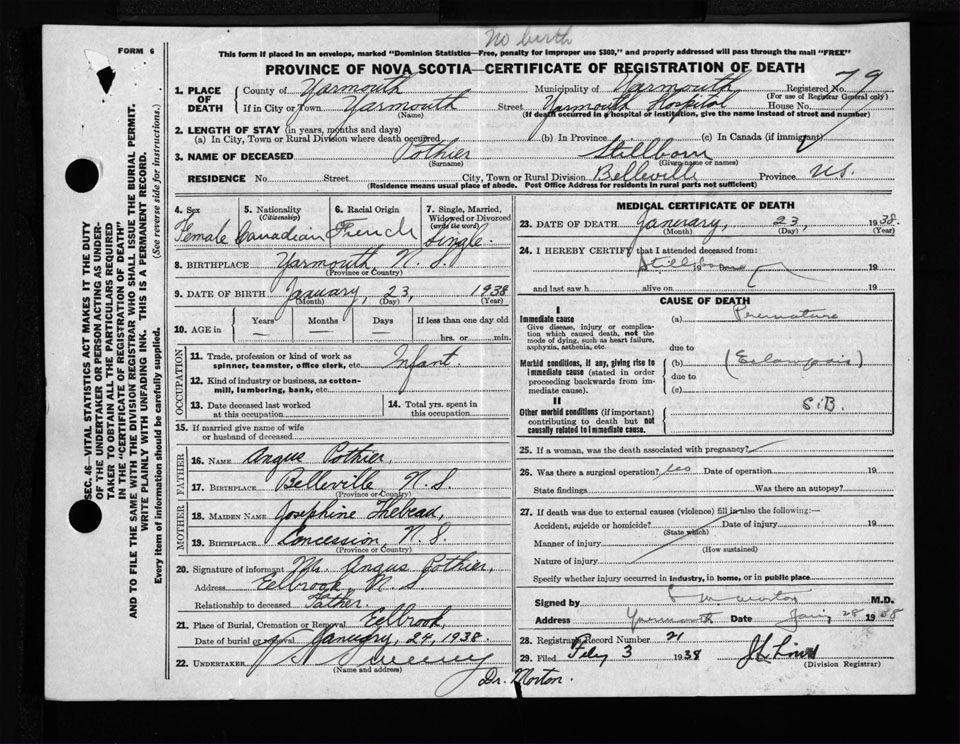 No birth
FORM 6
This form if placed in an envelope, marked "Dominion Statistics—Free, penalty for improper use $300," and properly addressed will pass through the mail "FREE"
PROVINCE OF NOVA SCOTIA—CERTIFICATE OF REGISTRATION OF DEATH
1. PLACE OF DEATH County of Yarmouth Municipality of Yarmouth Registered No. 79
(For use of Registrar General only)
If in City or Town Yarmouth Street Yarmouth Hospital House No.
(Name) (If death occurred in a hospital or institution, give the name instead of street and number)
2. LENGTH OF STAY (in years, months and days)
(a) In City, Town or Rural Division where death occurred (b) In Province (c) In Canada (if immigrant)
3. NAME OF DECEASED Pothier Stillborn
(Surname) (Given name or names)
RESIDENCE No. Street City, Town or Rural Division Belleville Province N.S.
(Residence means usual place of abode. Post Office Address for residents in rural parts not sufficient)
4. Sex Female
5. Nationality (Citizenship) Canadian
6. Racial Origin French
7. Single, Married, Widowed or Divorced (write the word) Single.
8. BIRTHPLACE Yarmouth N.S.
(Province or Country)
9. DATE OF BIRTH January, 23, 1938
(Month) (Day) (Year)
10. AGE in Years Months Days If less than one day old
— — hrs. or min.
OCCUPATION
11. Trade, profession or kind of work as spinner, teamster, office clerk, etc. Infant.
12. Kind of industry or business, as cotton-mill, lumbering, bank, etc.
13. Date deceased last worked at this occupation
14. Total yrs. spent in this occupation
15. If married give name of wife or husband of deceased
FATHER
16. NAME Angus Pothier,
17. BIRTHPLACE Belleville, N.S.
(Province or Country)
MOTHER
18. MAIDEN NAME Josephine Thebeau,
19. BIRTHPLACE Concession, N.S.
(Province or Country)
20. Signature of informant Mr. Angus Pothier,
Address Eelbrook, N S
Relationship to deceased Father.
21. Place of Burial, Cremation or Removal Eelbrook,
Date of burial or removal January, 24, 1938.
22. UNDERTAKER Sweeny
(Name and address)
Dr. Morton.
MEDICAL CERTIFICATE OF DEATH
23. DATE OF DEATH January, 23, 1938.
(Month) (Day) (Year)
24. I HEREBY CERTIFY that I attended deceased from:
Stillborn 19
and last saw h alive on 19
CAUSE OF DEATH
I
Immediate cause (a) Premature
Give disease, injury or complication which caused death, not the mode of dying, such as heart failure, asphyxia, asthenia, etc.
due to
Morbid conditions, if any, giving rise to immediate cause (stated in order proceeding backwards from immediate cause). (b) (Eclampsia)
due to
(c)
II
Other morbid conditions (if important) contributing to death but not causally related to immediate cause. SiB.
25. If a woman, was the death associated with pregnancy?
26. Was there a surgical operation? Date of operation 19
State findings Was there an autopsy?
27. If death was due to external causes (violence) fill in also the following:—
Accident, suicide or homicide? Date of injury 19
(State which)
Manner of injury
(How sustained)
Nature of injury
Specify whether injury occurred in industry, in home, or in public place
Signed by Morton M.D.
Address Yarmouth Date 28 1938
28. Registrars Record Number 21
29. Filed 3 1938
(Division Registrar)
SEC. 46—VITAL STATISTICS ACT MAKES IT THE DUTY
OF THE UNDERTAKER OR PERSON ACTING AS UNDER-
TAKER TO OBTAIN ALL THE PARTICULARS REQUIRED
IN THE "CERTIFICATE OF REGISTRATION OF DEATH"
AND TO FILE THE SAME WITH THE DIVISION REGISTRAR WHO SHALL ISSUE THE BURIAL PERMIT.
WRITE PLAINLY WITH UNFADING INK. THIS IS A PERMANENT RECORD.
Every item of information should be carefully supplied. (See reverse side for instructions.)